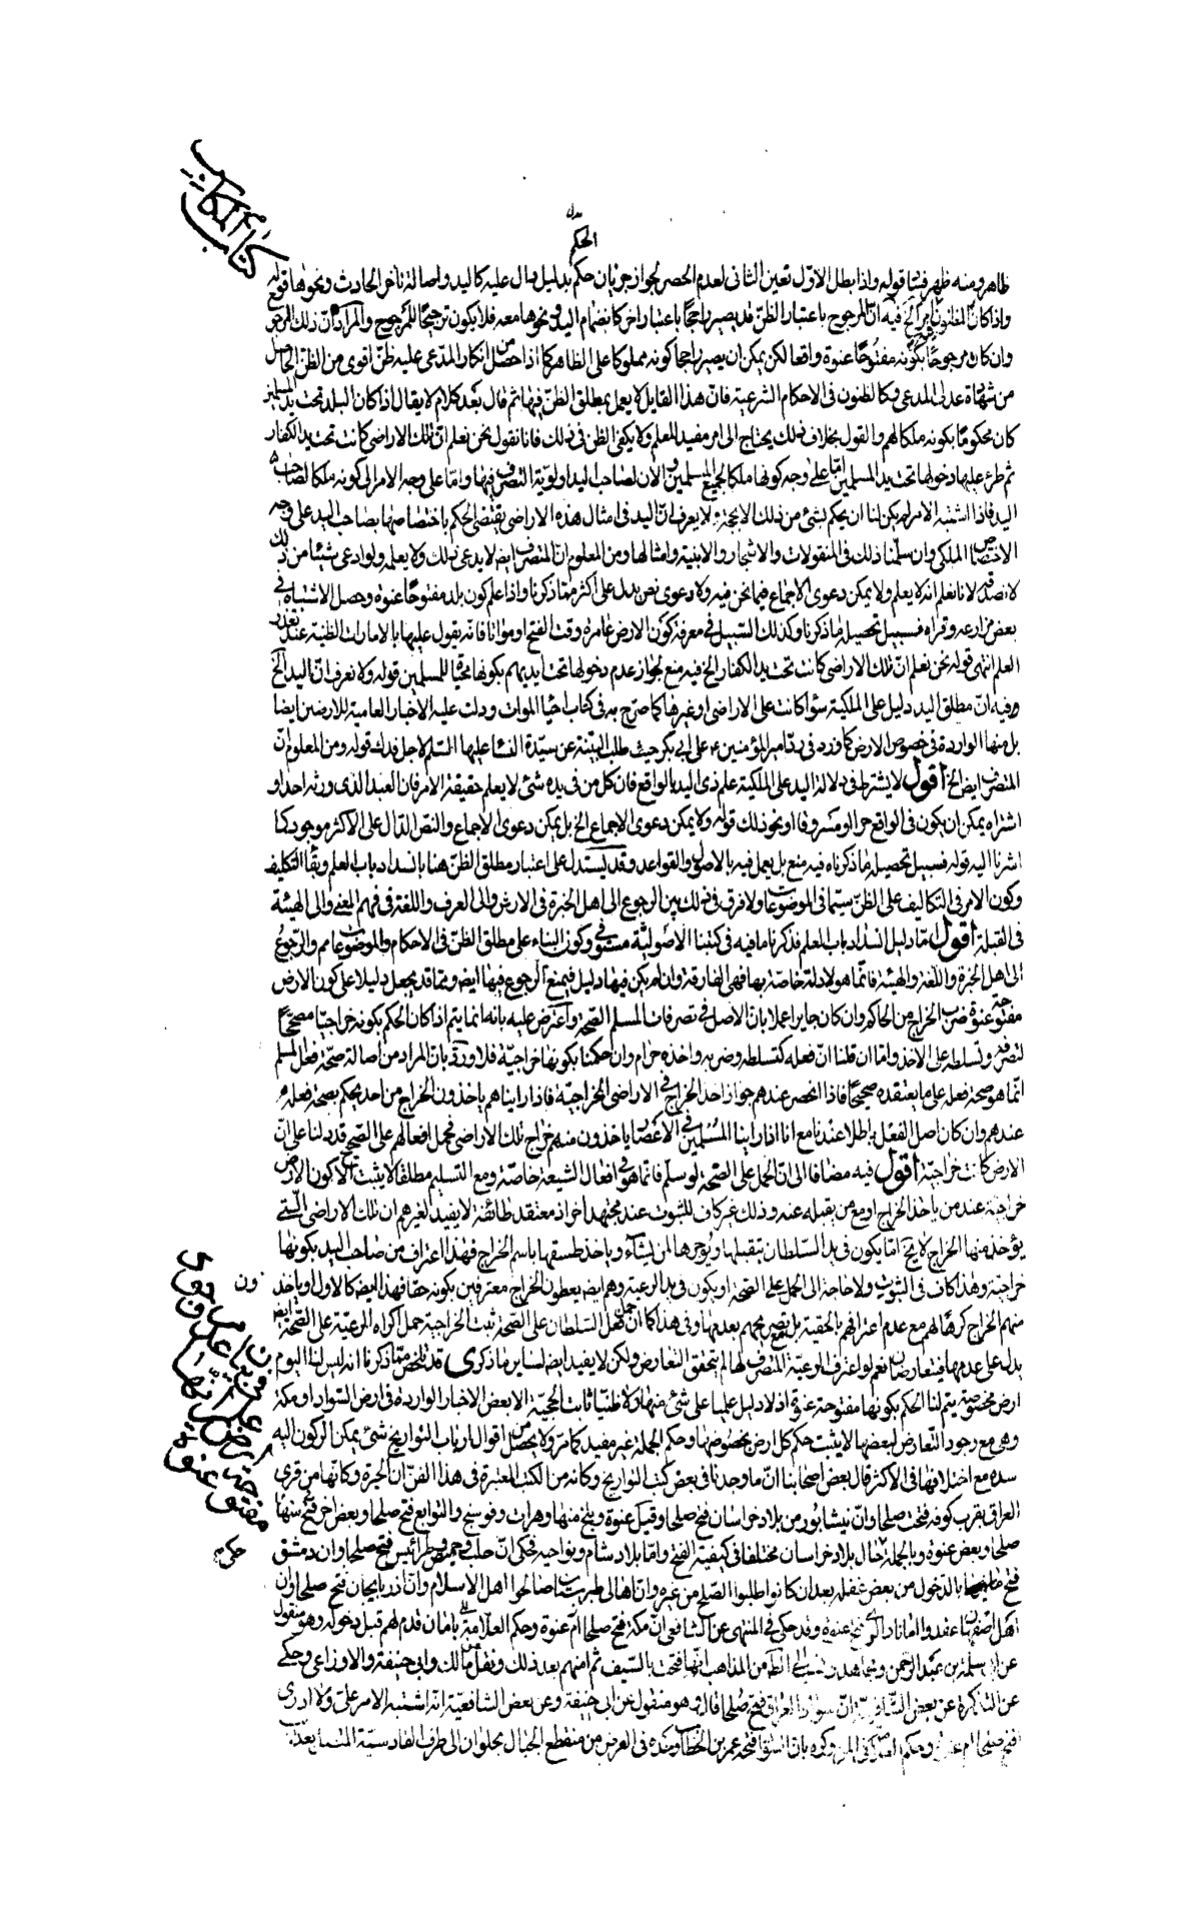 كتاب المكاسب
الحكم
ظاهر ومنه ظهر فيما قوله واذا بطل الاول تعين الثانى لعدم الحصر لجواز جريان حكم بدليل دال عليه كاليد واصالة تاخر الحادث ونحوها قوله
واذا كان المظنون فيه ان المرجوح باعتبار الظن قد يصير راجحا باعتبار اخر كانضمام اليد ونحوها معه فلا يكون ترجيحا للمرجوح والمراد ان ذلك المرجوح
وان كان مرجوحا بكونه مفتوحا عنوة واقعا لكن يمكن ان يصير راجحا كونه مملوكا على الظاهر كما اذا حصل من انكار المدعى عليه ظن اقوى من الظن الحاصل
من شهادة عدلى المدعى وكالظنون فى الاحكام الشرعية فان هذا القايل لا يعمل بمطلق الظن فيها ثم قال بعد كلام لا يقال اذا كان البلد تحت يد المسلمين
كان محكوما بكونه ملكا لهم والقول بخلاف ذلك يحتاج الى امر مفيد للعلم ولا يكفى الظن فى ذلك فانا نقول نحن نعلم ان تلك الاراضى كانت تحت يد الكفار
ثم طرء عليها دخولها تحت يد المسلمين اما على وجه كونها ملكا لجميع المسلمين والان لصاحب اليد اولوية التصرف فيها واما على وجه الامر الى كونه ملكا لصاحب
اليد فاذا اشتبه الامر لم يكن لنا ان يحكم بشئ من ذلك الا بحجة ولا يعرف ان اليد فى امثال هذه الاراضى يقتضى الحكم باختصاصها بصاحب اليد على وجه
الاختصاص الملكى وان سلمنا ذلك فى المنقولات والاشجار والابنية وامثالها ومن المعلوم ان المتصرف ايضا لا يدعى ذلك ولا يعلمه ولو ادعى شيئا من ذلك
لا نصدقه لانا نعلم انه لا يعلم ولا يمكن دعوى الاجماع فيما نحن فيه ولا دعوى نص يدل على اكثر مما ذكرنا واذا علم كون بلد مفتوحا عنوة وحصل الاشتباه فى
بعض مزارعه وقراه فسبيل تحصيله ما ذكرنا وكذلك السبيل فى معرفة كون الارض عامرة وقت الفتح او مواتا فانه يقول عليها بالامارات الظنية عند تعذر
العلم انتهى قوله نحن نعلم ان تلك الاراضى كانت تحت يد الكفار الخ فيه منع لجواز عدم دخولها تحت ايديهم بكونها محياة للمسلمين قوله ولا نعرف ان اليد الخ
وفيه ان مطلق اليد دليل على الملكية سواء كانت على الاراضى او غيرها كما صرح به فى كتاب احيا الموات ودلت عليه الاخبار العامية للارضين ايضا
بل منها الواردة فى خصوص الارض كما ورد فى رد امير المؤمنين ع على ابى بكر حيث طلب البينة عن سيدة النساء عليها السلام لاجل فدك قوله ومن المعلوم ان
المتصرف ايضا الخ اقول لا يشترط فى دلالة اليد على الملكية علم ذى اليد بالواقع فان كل من فى يده شئ لا يعلم حقيقة الامر فان العبد الذى ورثه احد او
اشتراه يمكن ان يكون فى الواقع حرا او مسروقا او نحو ذلك قوله ولا يمكن دعوى الاجماع الخ بل يمكن دعوى الاجماع والنص الدال على الاكثر موجود كما
اشرنا اليه قوله فسبيل تحصيله ما ذكرناه فيه منع بل يعمل فيه بالاصول والقواعد وقد يستدل على اعتبار مطلق الظن هنا بانسداد باب العلم وبقاء التكليف
وكون الامر فى التكاليف على الظن سيما فى الموضوعات ولا فرق فى ذلك بين الرجوع الى اهل الخبرة فى الارش والى العرف واللغة فى فهم المعنى والى الهيئة
فى القبلة اقول اما دليل انسداد باب العلم فذكرنا ما فيه فى كتبنا الاصولية مستوفى وكون البناء على مطلق الظن فى الاحكام والموضوعات عام والرجوع
الى اهل الخبرة واللغة والهيئة فانما هو لادلة خاصة بها فهى الفارقة وان لم يكن فيها دليل فيمنع الرجوع فيها ايضا ومما قد يجعل دليلا على كون الارض
مفتوحة عنوة ضرب الخراج من الحاكم وان كان جايرا عملا بان الاصل فى تصرفات المسلم الصحة واعترض عليه بانه انما يتم اذا كان الحكم بكونه خراجيا مصححا
لتصرفه وتسلطه على الاخذ واما ان قلنا ان فعله كتسلطه وضربه واخذه حرام وان حكمنا بكونها خراجية فلا ورد بان المراد من اصالة صحة فعل المسلم
انما هو صحة فعله على ما يعتقده صحيحا فاذا انحصر عندهم جواز اخذ الخراج فى الاراضى الخراجية فاذا راينا هم ياخذون الخراج من احد يحكم بصحة فعلهم
عندهم وان كان اصل الفعل باطلا عندنا مع انا اذا راينا المسلمين فى الاعصار ياخذون منهم خراج تلك الاراضى فحمل افعالهم على الصحة قد دلنا على ان
الارض كانت خراجية اقول فيه مضافا الى ان الحمل على الصحة لو سلم فانما هو فى افعال الشيعة خاصة ومع التسليم مطلقا لا يثبت الا كون الارض
خراجية عند من ياخذ الخراج او مع من يقبله عنه وذلك غير كاف للثبوت عند مجتهد اخر اذ معتقد طائفة لا يفيد لغيرهم ان تلك الاراضى التى
يؤخذ منها الخراج لا يخ اما يكون فى يد السلطان يتقبلها ويؤجرها لمن يشاء وياخذ طسقها باسم الخراج فهذا اعتراف من صاحب اليد بكونها
خراجية وهذا كاف فى الثبوت ولا حاجة الى الحمل على الصحة او يكون فى يد الرعية وهم ايضا يعطون الخراج معترفين بكونه حقا فهذا ايضا كالاول او ياخذون
منهم الخراج كرها لهم مع عدم اعترافهم بالحقية بل مع تصريحهم بعدمها وفى هذا كما ان حمل فعل السلطان على الصحة يثبت الخراجية حمل اكراه الرعية على الصحة ايضا
يدل على عدمها فيتعارضان نعم لو اعترف الرعية المتصرف لها لم يتحقق التعارض ولكن لا يفيد ايضا لساير ما ذكرى قد تلخص مما ذكرنا انه ليس لنا اليوم
ارض مخصوصة يتم لنا الحكم بكونها مفتوحة عنوة اذ لا دليل علميا على شئ منها ولا ظنيا ثابت الحجية الا بعض الاخبار الواردة فى ارض السواد او مكة
وهى مع وجود التعارض لبعضها لا يثبت حكم كل ارض بخصوصها وحكم الجملة غير مفيد كما مر ولا يحصل من اقوال ارباب التواريخ شئ يمكن الركون اليه
سده مع اختلافها فى الاكثر قال بعض اصحابنا ان ما وجدنا فى بعض كتب التواريخ وكانه من الكتب المعتبرة فى هذا الفن ان الحيرة وكانها من قرى
العراق بقرب كوفة فتحت صلحا وان نيشابور من بلاد خراسان فتح صلحا وقيل عنوة وبلخ منها وهرات وفوسنج والتوابع فتح صلحا وبعض اخر فتح منها
صلحا وبعض عنوة وبالجملة حال بلاد خراسان مختلفا فى كيفية الفتح واما بلاد شام ونواحيه فحكى ان حلب وحمص وطرابلس فتح صلحا وان دمشق
فتح بالدخول من بعض غفلة بعد ان كانوا طلبوا الصلح من غيره وان اهالى طبرستان صالحوا اهل الاسلام وان اذربايجان فتح صلحا وان
اهل اصفهان عقدوا امانا فتح عنوة وقد حكى فى المنتهى عن الشافعى ان مكة فتح صلحا ام عنوة وحكم العلامة بامان قدم لهم قبل دخوله وهو منقول
عن ابى سلمة بن عبد الرحمن ومجاهد من المذاهب انها فتحت بالسيف ثم امنهم بعد ذلك ونقل عن مالك وابى حنيفة والاوزاعى وحكى
عن التذكرة عن بعض الشافعية ان سواد العراق فتح صلحا قال وهو منقول عن ابى حنيفة وعن بعض الشافعية انه اشتبه الامر على ولا ادرى
افتح صلحا ام عنوة وحكم بان السواد فتحه عمر بن الخطاب وحده فى العرض من منقطع الجبال بحلوان الى طرف القادسية
مفتوحة عنوة